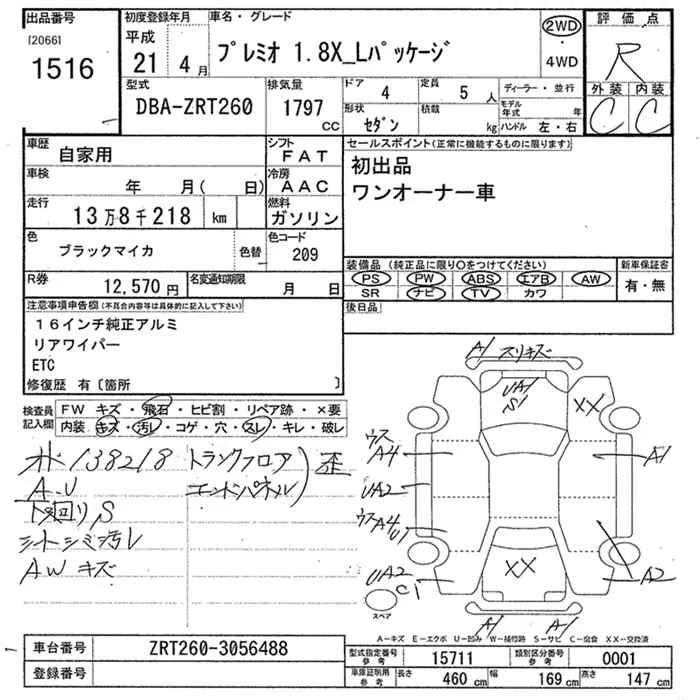 出品番号
[2066]
1516
初度登録年月
平成
21 4 月
車名・グレード
プレミオ 1.8X_Lパッケージ
2WD
4WD
評価点
R
外装 内装
C C
型式
DBA-ZRT260
排気量
1797
cc
ドア 4
定員 5 人
形状
セダン
積載
kg
ディーラー・並行
モデル年式 年
ハンドル 左・右
車歴
自家用
シフト
FAT
車検
年 月( 日)
冷房
AAC
走行
13万8千218 km
燃料
ガソリン
色
ブラックマイカ
色替
色コード
209
R券
12,570円
名変通知期限
月 日
セールスポイント(正常に機能するものに限ります)
初出品
ワンオーナー車
装備品 (純正品に限り○をつけてください)
PS PW ABS エアB AW
SR ナビ TV カワ
新車保証書
有・無
後日品
注意事項申告欄(不具合内容等は具体的に記入して下さい)
16インチ純正アルミ
リアワイパー
ETC
修復歴 有〔箇所 〕
検査員記入欄
FW キズ・飛石・ヒビ割・リペア跡・×要
内装・キズ・汚レ・コゲ・穴・スレ・キレ・破レ
138218 トランクフロア
A.U エンドパネル
歪
下廻りS
シートシミ汚レ
AW キズ
A1 スリキズ
UA1
S1
XX
ウス
A4
A1
UA2
ウスA4
U1
XX
UA2
C1
A2
スペア
A1 A1
A-キズ E-エクボ U-凹み W-補修跡 S-サビ C-腐食 XX-交換済
車台番号
ZRT260-3056488
登録番号
型式指定番号
参考
15711
類別区分番号
参考
0001
車庫証明用
参考
長さ 460 cm
幅 169 cm
高さ 147 cm